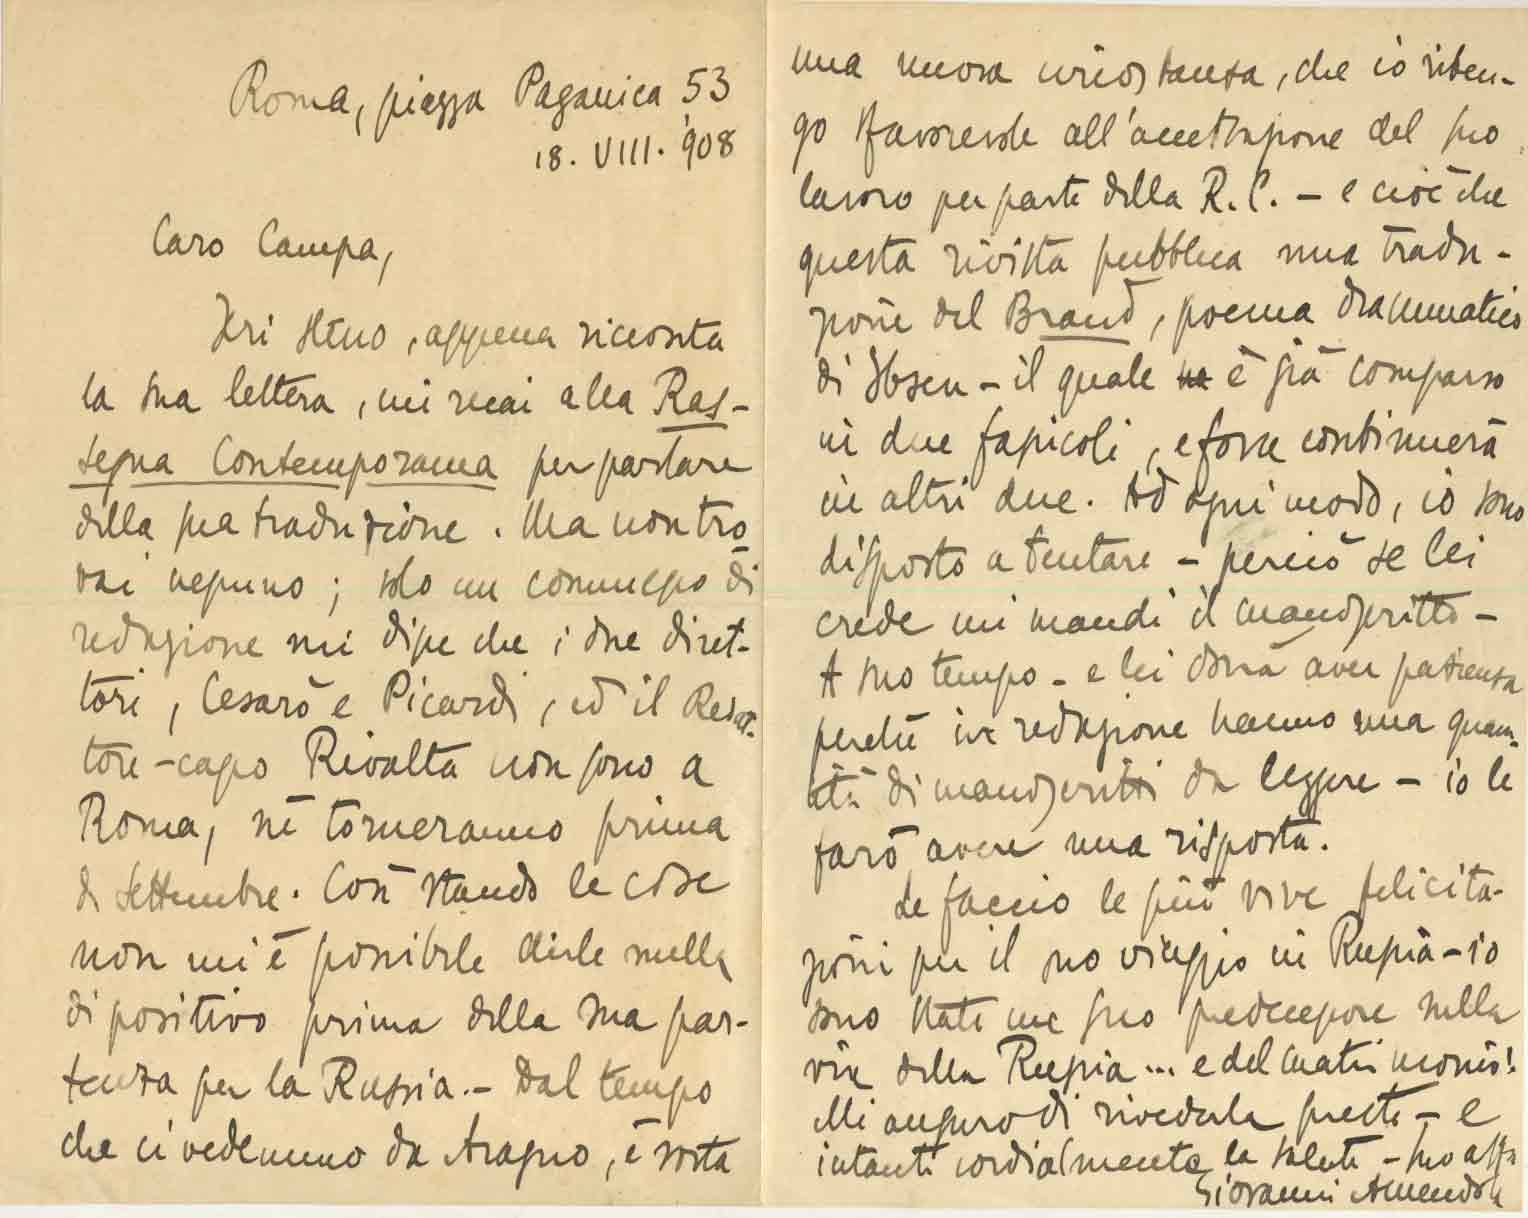 Roma, piazza Paganica 53
18. VIII. 908
Caro Campa,
Ieri stesso, appena ricevuta
la sua lettera, mi recai alla Ras-
segna Contemporanea per parlare
della sua traduzione. Ma non tro
vai nessuno; solo un commesso di
redazione mi disse che i due diret-
tori, Cesarò e Picardi, ed il Redat-
tore-capo Rivalta non sono a
Roma, nè torneranno prima
di Settembre. Così stando le cose
non mi è possibile dirle nulla
di positivo prima della sua par-
tenza per la Russia.- Dal tempo
che ci vedemmo da Aragno, è sorta
una nuova circostanza, che io riten-
go sfavorevole all'accettazione del suo
lavoro per parte della R.C. - e cioè che
questa rivista pubblica una tradu-
zione del Brand, poema drammatico
di Ibsen - il quale è già comparso
in due fascicoli, e forse continuerà
in altri due. Ad ogni modo, io sono
disposto a tentare - perciò se lei
crede mi mandi il manoscritto -
A suo tempo - e lei dovrà aver pazienza
perchè in redazione hanno una quan-
tità di manoscritti da leggere - io le
farò avere una risposta.
Le faccio le più vive felicita-
zioni per il suo viaggio in Russia - io
sono stato un suo predecessore nella
via della Russia... e del matrimonio!
Mi auguro di rivederla presto - e
intanto cordialmente la saluto - suo aff.
Giovanni Amendola